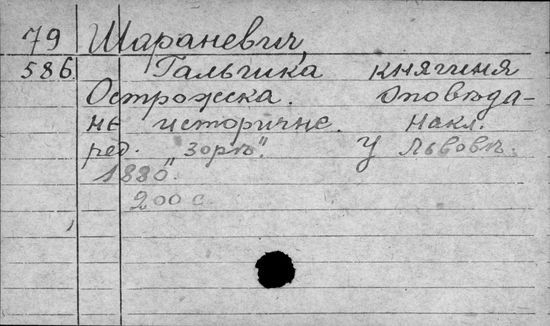 79 Шараневич,
586 Гальшка княгиня
Острожска. Оповѣда-
нє историчнє. накл.
ред. „Зорѣ". У Львовѣ.
1880.
200 с.